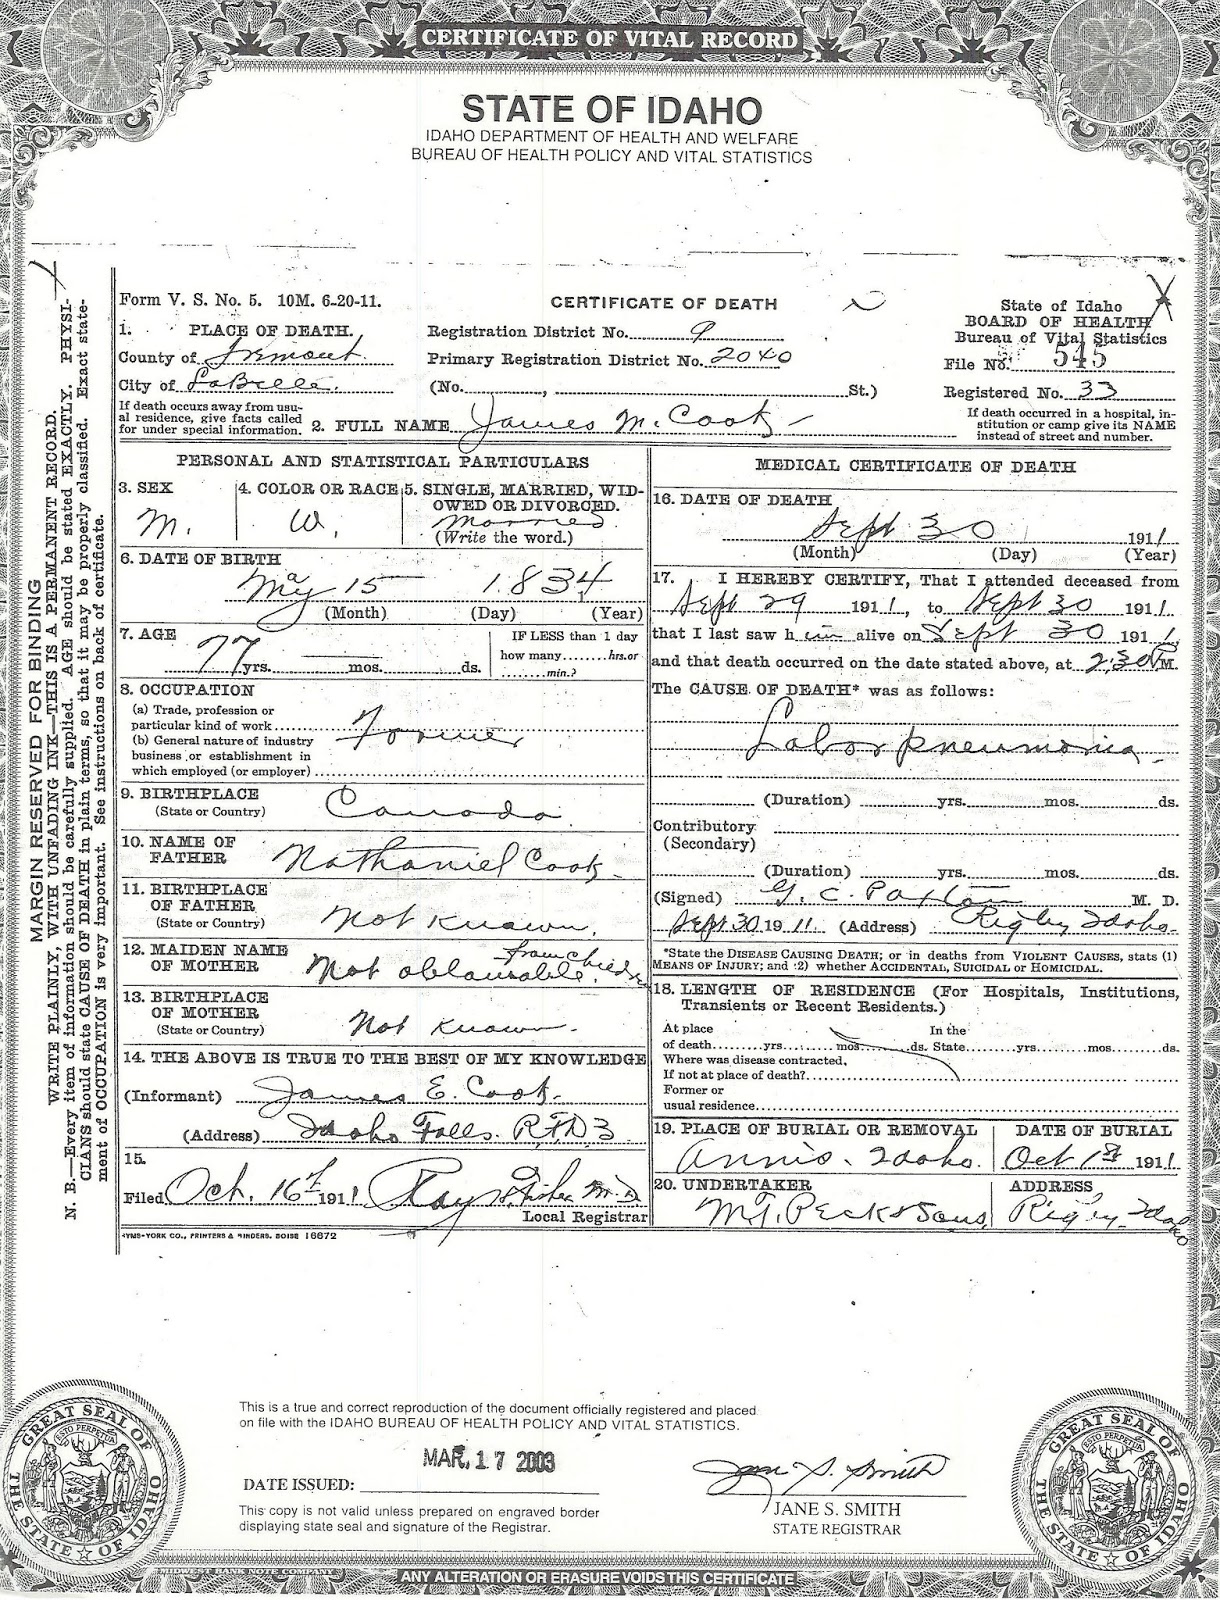 CERTIFICATE OF VITAL RECORD
STATE OF IDAHO
IDAHO DEPARTMENT OF HEALTH AND WELFARE
BUREAU OF HEALTH POLICY AND VITAL STATISTICS
Form V. S. No. 5. 10M. 6-20-11.
CERTIFICATE OF DEATH
State of Idaho
BOARD OF HEALTH
Bureau of Vital Statistics
File No. 545
Registered No. 33
If death occurred in a hospital, in-
stitution or camp give its NAME
instead of street and number.
1. PLACE OF DEATH.
County of Fremont
City of LaBelle.
Registration District No. 9
Primary Registration District No. 2040
(No. , St.)
If death occurs away from usu-
al residence, give facts called
for under special information.
2. FULL NAME James M. Cook
PERSONAL AND STATISTICAL PARTICULARS
3. SEX
M.
4. COLOR OR RACE
W.
5. SINGLE, MARRIED, WID-
OWED OR DIVORCED.
Married
(Write the word.)
6. DATE OF BIRTH
May 15 1834
(Month) (Day) (Year)
7. AGE
77 yrs. mos. ds.
IF LESS than 1 day
how many hrs. or
min.?
8. OCCUPATION
(a) Trade, profession or
particular kind of work Farmer
(b) General nature of industry
business or establishment in
which employed (or employer)
9. BIRTHPLACE
(State or Country)
Canada
10. NAME OF
FATHER
Nathaniel Cook
11. BIRTHPLACE
OF FATHER
(State or Country)
Not Known.
12. MAIDEN NAME
OF MOTHER
Not obtainable from children
13. BIRTHPLACE
OF MOTHER
(State or Country)
Not Known.
14. THE ABOVE IS TRUE TO THE BEST OF MY KNOWLEDGE
(Informant) James E. Cook.
(Address) Idaho Falls. RFD 3
15.
Filed Oct. 16th 1911 Ray Fisher M.D.
Local Registrar
SYMS-YORK CO., PRINTERS & BINDERS. BOISE 16872
MEDICAL CERTIFICATE OF DEATH
16. DATE OF DEATH
Sept 30 1911
(Month) (Day) (Year)
17. I HEREBY CERTIFY, That I attended deceased from
Sept 29 1911, to Sept 30 1911
that I last saw him alive on Sept 30 1911,
and that death occurred on the date stated above, at 2:30 P M.
The CAUSE OF DEATH* was as follows:
Labor pneumonia
(Duration) yrs. mos. ds.
Contributory
(Secondary)
(Duration) yrs. mos. ds.
(Signed) G. C. Paxton M. D.
Sept 30 1911. (Address) Rigby Idaho.
*State the DISEASE CAUSING DEATH; or in deaths from VIOLENT CAUSES, stats (1)
MEANS OF INJURY; and (2) whether ACCIDENTAL, SUICIDAL or HOMICIDAL.
18. LENGTH OF RESIDENCE (For Hospitals, Institutions,
Transients or Recent Residents.)
At place In the
of death yrs. mos. ds. State yrs. mos. ds.
Where was disease contracted,
If not at place of death?
Former or
usual residence
19. PLACE OF BURIAL OR REMOVAL
Annis. Idaho.
DATE OF BURIAL
Oct 1st 1911
20. UNDERTAKER
M.T. Peck & Sons
ADDRESS
Rigby Idaho
MARGIN RESERVED FOR BINDING
WRITE PLAINLY, WITH UNFADING INK—THIS IS A PERMANENT RECORD.
N. B.—Every item of information should be carefully supplied. AGE should be stated EXACTLY. PHYSI-
CIANS should state CAUSE OF DEATH in plain terms, so that it may be properly classified. Exact state-
ment of OCCUPATION is very important. See instructions on back of certificate.
This is a true and correct reproduction of the document officially registered and placed
on file with the IDAHO BUREAU OF HEALTH POLICY AND VITAL STATISTICS.
MAR 17 2003
DATE ISSUED:
This copy is not valid unless prepared on engraved border
displaying state seal and signature of the Registrar.
Jane S. Smith
JANE S. SMITH
STATE REGISTRAR
GREAT SEAL OF THE STATE OF IDAHO
ESTO PERPETUA
GREAT SEAL OF THE STATE OF IDAHO
ESTO PERPETUA
MIDWEST BANK NOTE COMPANY
ANY ALTERATION OR ERASURE VOIDS THIS CERTIFICATE